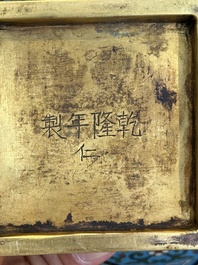 乾隆年製
仁